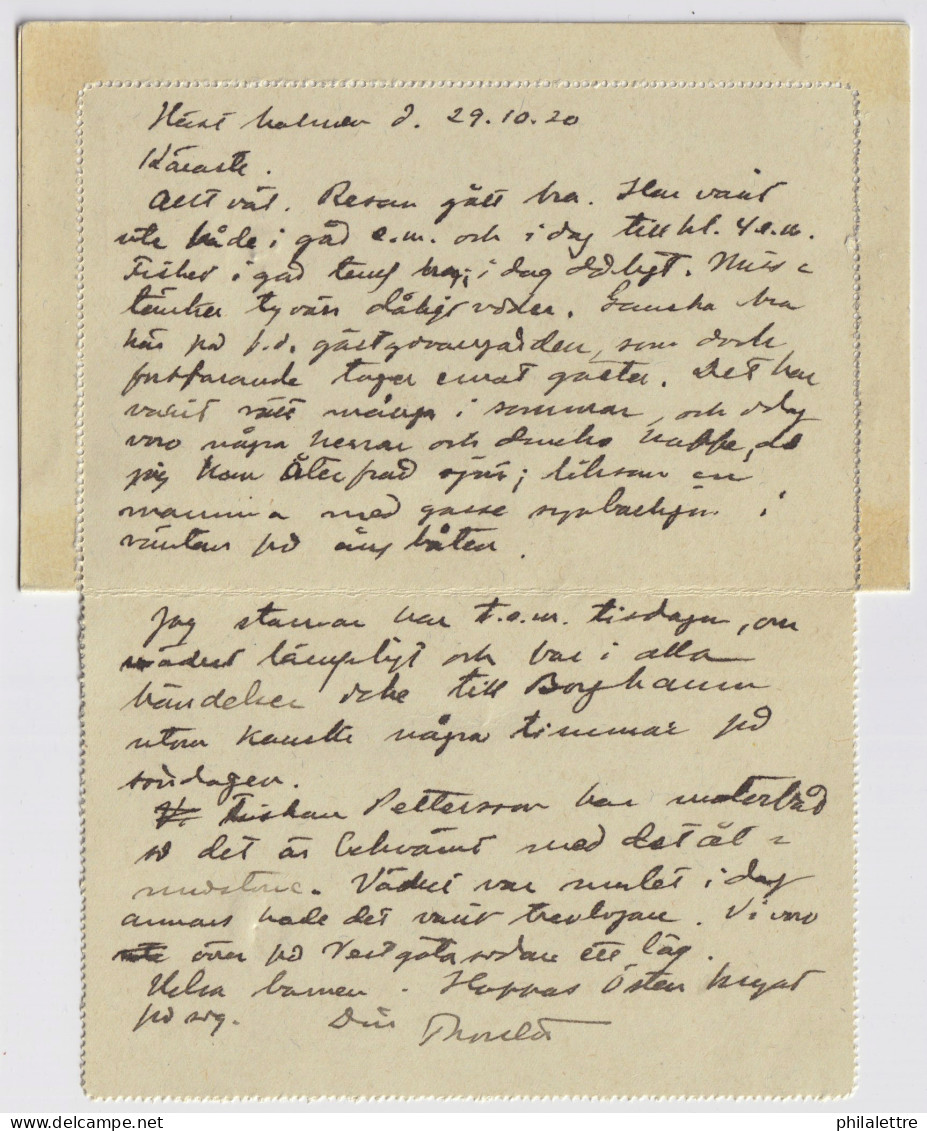 Hästholmen d. 29.10.20
Käraste.
Allt väl. Resan gått bra. Har varit
ute både i går e.m. och i dag till kl. 4 e.m.
Fisket i går bra; i dag dåligt. Miss-
tänker tyvärr dåligt väder. Ganska bra
här på f.d. gästgivaregården, som dock
fortfarande tager emot gäster. Det har
varit rätt många i sommar, och idag
voro några herrar och drucko kaffe, då
jag kom åter från sjön; liksom en
mamma med gosse i
väntan på ångbåten.
Jag stannar här t.o.m. tisdagen, om
vädret lämpligt och far i alla
händelser icke till Borghamn
utom kanske några timmar på
söndagen.
Fiskare Pettersson har motorbåd
så det är bekvämt med det
Vädret var mulet i dag
annars hade det varit Vi voro
över på Vestgötasidan ett tag.
Helsa barnen. Hoppas Östen kryat
på sig. Din
philalettre